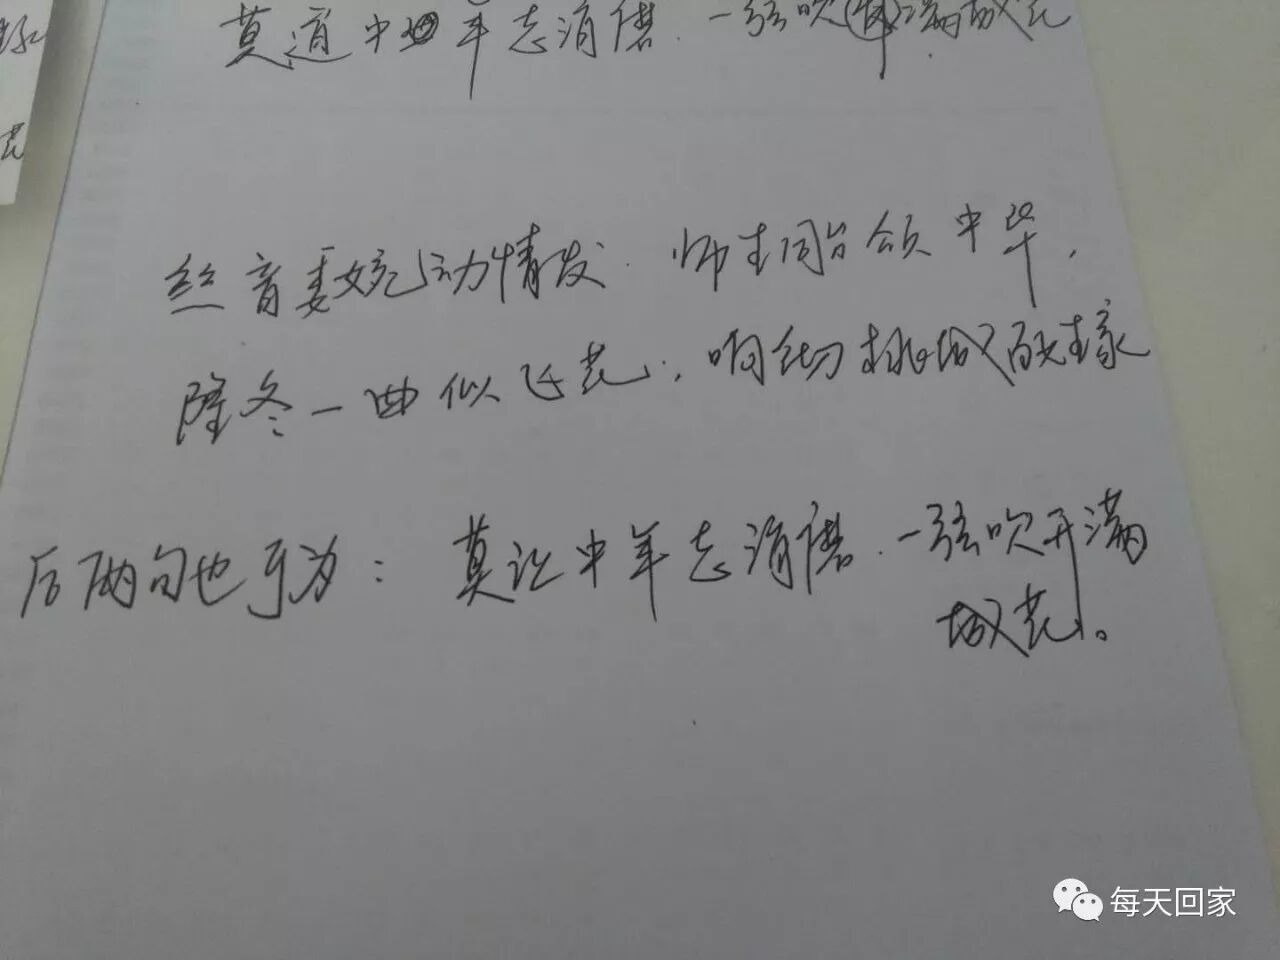 莫道中年志消磨.一弦吹满城花
丝音委婉动情发.师生同台颂中华,
隆冬一曲似飞花,响彻桃城百姓家
后两句也可为:莫让中年志消磨.一弦吹开满
城花。
花
每天回家